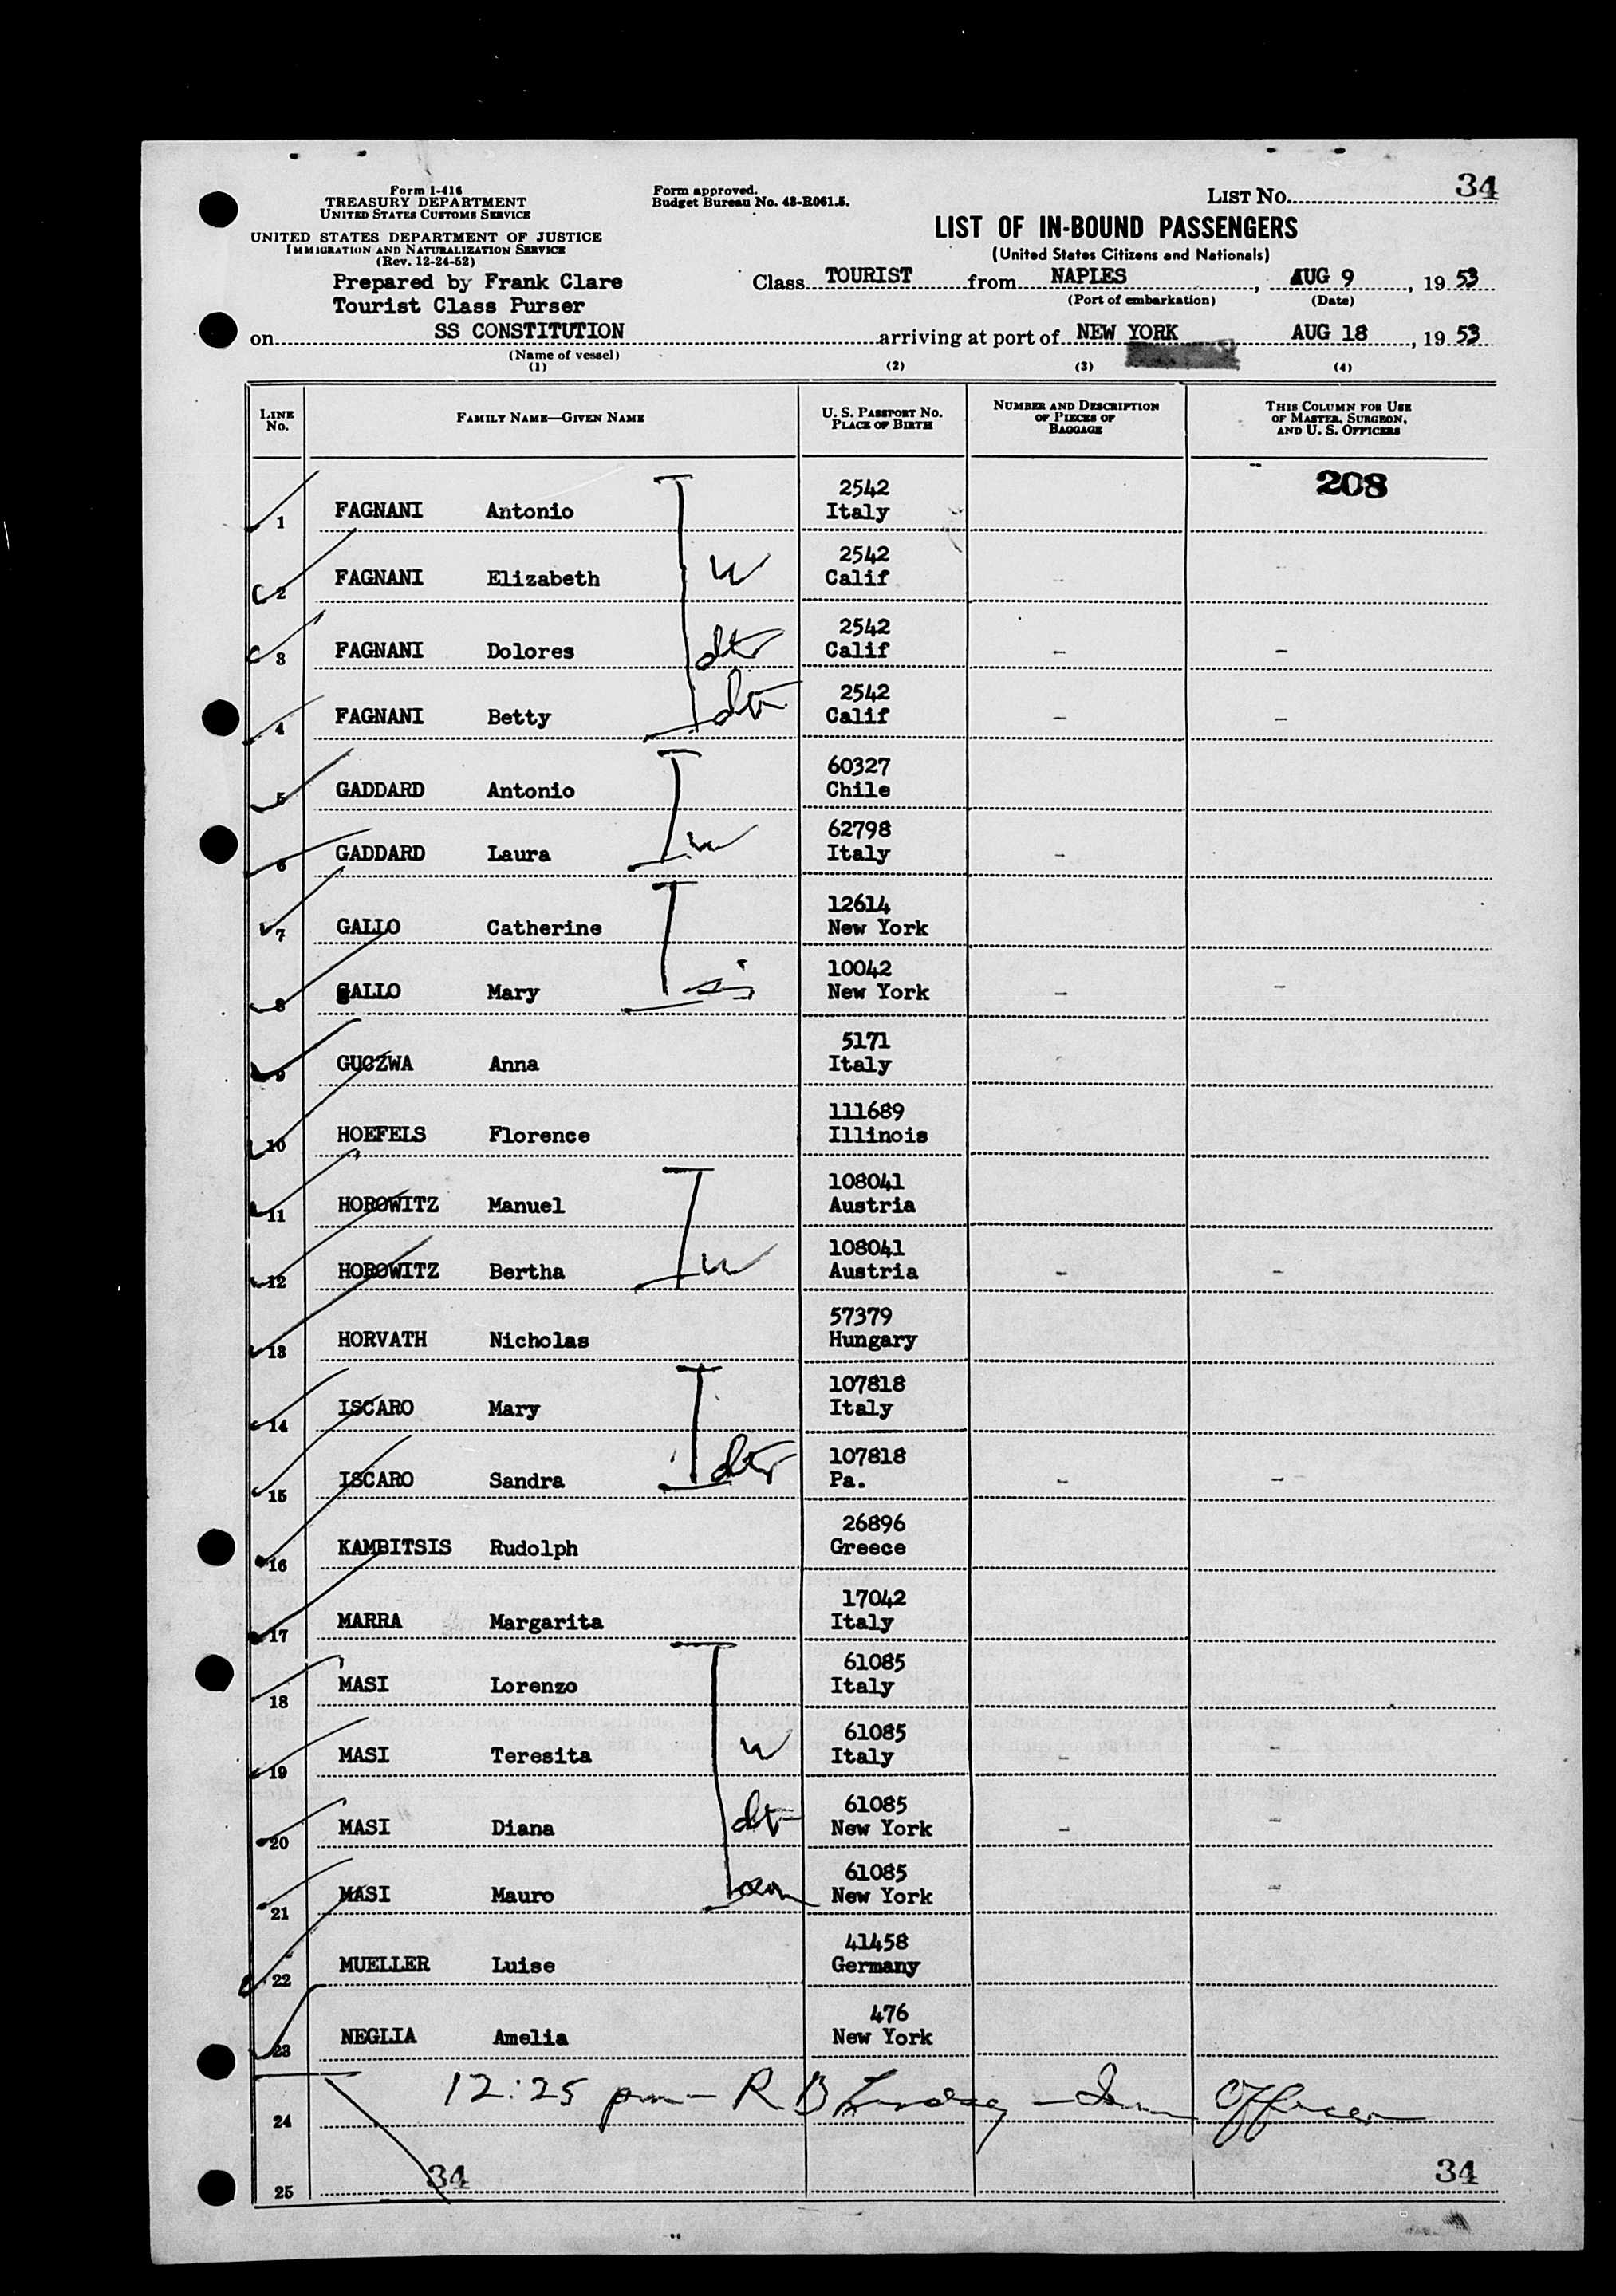 34
Form I-416
TREASURY DEPARTMENT
UNITED STATES CUSTOMS SERVICE
UNITED STATES DEPARTMENT OF JUSTICE
IMMIGRATION AND NATURALIZATION SERVICE
(Rev. 12-24-52)
Form approved.
Budget Bureau No. 43-R061.5.
LIST NO.
LIST OF IN-BOUND PASSENGERS
(United States Citizens and Nationals)
Prepared by Frank Clare
Tourist Class Purser
Class TOURIST from NAPLES, AUG 9, 19 53
(Port of embarkation) (Date)
on SS CONSTITUTION arriving at port of NEW YORK AUG 18, 19 53
(Name of vessel)
(1) (2) (3) (4)
LINE NO. FAMILY NAME—GIVEN NAME U. S. PASSPORT NO. PLACE OF BIRTH NUMBER AND DESCRIPTION OF PIECES OF BAGGAGE THIS COLUMN FOR USE OF MASTER, SURGEON, AND U. S. OFFICERS
208
2542
1 FAGNANI Antonio Italy
2542
2 FAGNANI Elizabeth w Calif
2542
3 FAGNANI Dolores dtr Calif - -
2542
4 FAGNANI Betty dtr Calif - -
60327
5 GADDARD Antonio Chile
62798
6 GADDARD Laura w Italy -
12614
7 GALLO Catherine New York
10042
8 GALLO Mary sis New York - -
5171
9 GUCZWA Anna Italy
111689
10 HOEFELS Florence Illinois
108041
11 HOROWITZ Manuel Austria
108041
12 HOROWITZ Bertha w Austria - -
57379
13 HORVATH Nicholas Hungary
107818
14 ISCARO Mary Italy
107818
15 ISCARO Sandra dtr Pa. - -
26896
16 KAMBITSIS Rudolph Greece
17042
17 MARRA Margarita Italy
61085
18 MASI Lorenzo Italy
61085
19 MASI Teresita w Italy - -
61085
20 MASI Diana dtr New York - -
61085
21 MASI Mauro son New York -
41458
22 MUELLER Luise Germany
476
23 NEGLIA Amelia New York
24 12:25 pm - R B Lindsay - Imm Officer
34 34
25